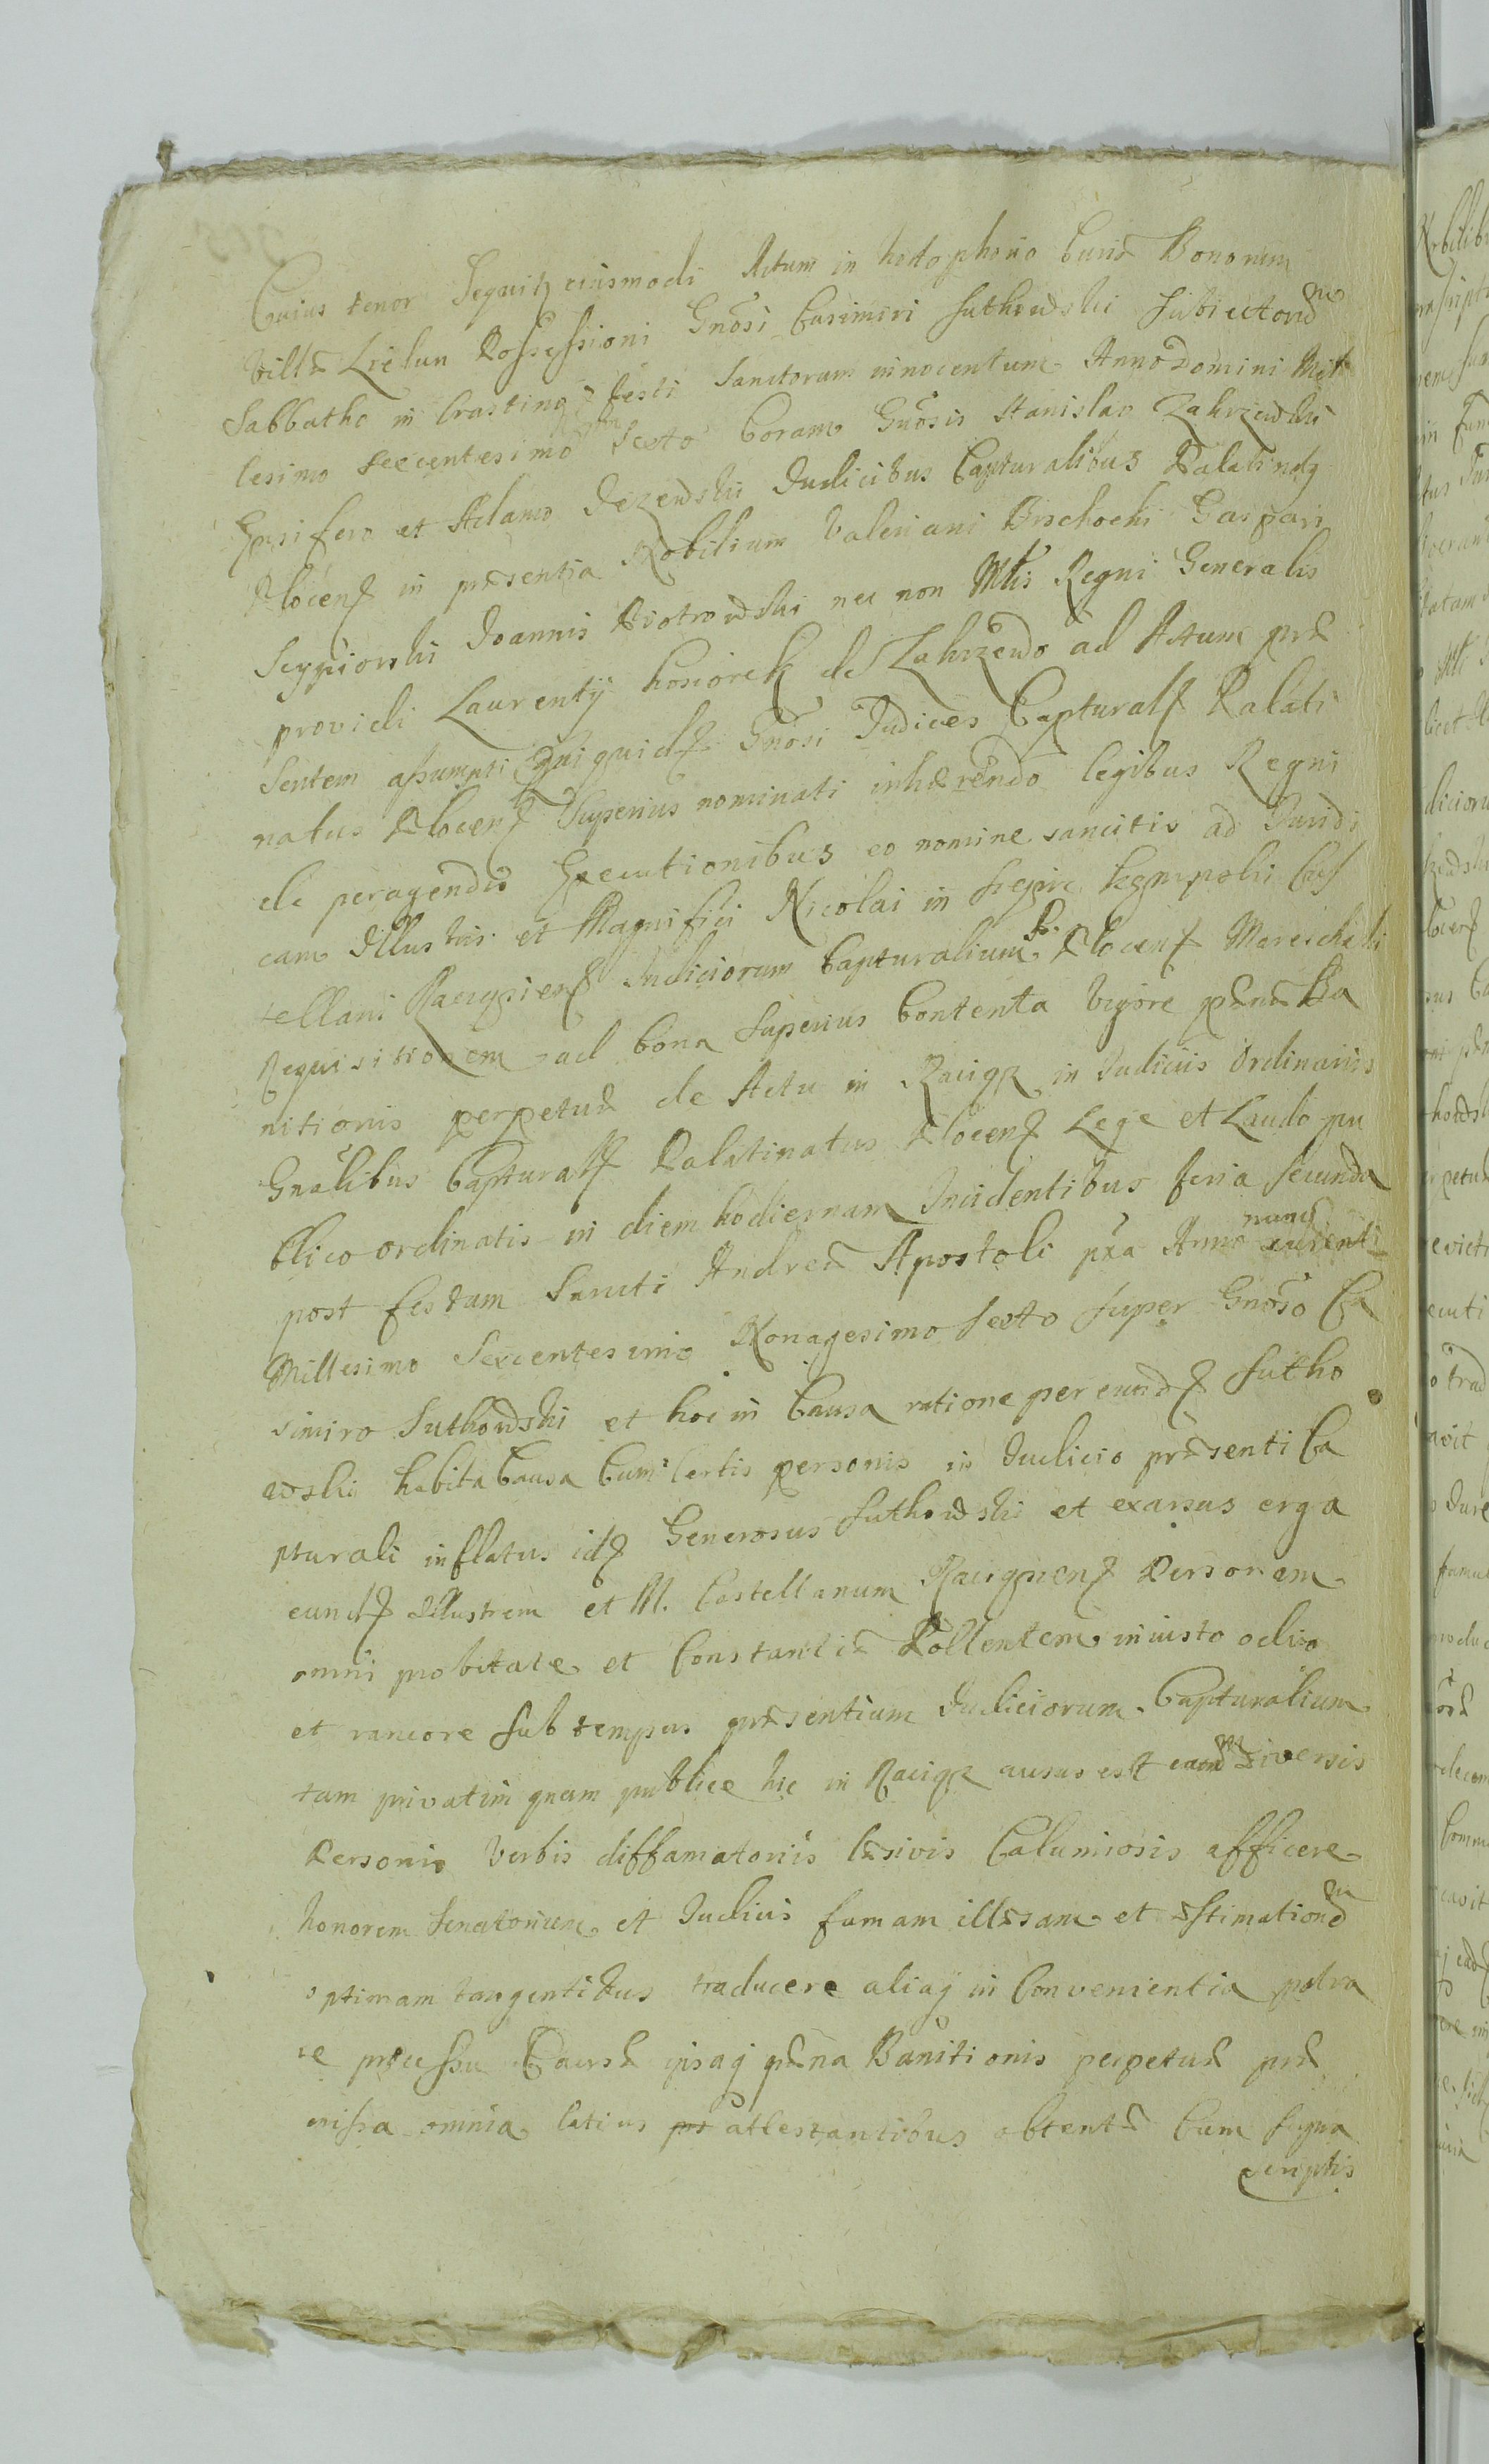 Cuius tenor Sequitur eiusmodi Actum in hodophorio Curiæ Bonorum
Villæ Possessioni Gnosi Casimiri Suthowski Subiectorum
Sabbatho in Crastino festi Sanctorum innocentum Anno Domini Mil
lesimo Sexcentesimo Sexto Coram Gnosis Stanislao Zakrzewski
Ensifero et Adamo Judicibus Capturalibus Palatinatus
Plocen in præsentia Nobilium Valeriani Gaspari
Joannis Piotrowski nec non Mtis Regni Generalis
providi Laurentij kosiorek de Zakrzewo ad Actum præ
sentem assumpti Quiquidem Gnosi Judices Capturales Palati
natus Plocen Superius nominati inhærendo legibus Regni
de peragendis Executionibus eo nomine sancitis ad Juridi
cam Illustris et Magnifici Nicolai in Cas
tellani Raciązien Judiciorum Capturalium P. Plocen Mareschalci
Requisitionem ad bona Superius Contenta Vigore pænæ Ba
nitionis perpetuæ de Actu in Raciąż in Judiciis Ordinariis
Gnalibus Capturalibus Palatinatus Plocen Lege et Laudo pu
blico ordinatis in diem hodiernam Incidentibus feria secunda
post festum Sancti Andreæ Apostoli pxa Anno nunc currenti
Millesimo Sexcentesimo Nonagesimo Sexto super Gnoso Ca
simiro Suthowski et hoc in Causa ratione per eundem Sutho
wski habita Causa Cum Certis personis in Judicio præsenti Ca
pturali inflatus idem Generosus Suthowski et exarsus erga
eundem Illustrem et M. Castellanum Raciązien Personam
omni probitate et Constantiæ Pollentem iniusto odio
et rancore Sub tempus præsentium Judiciorum Capturalium
tam privatim quam publice hic in Raciąż ausus est eam diversis
Personis Verbis diffamatoriis læsivis Calumiosis afficere
honorem Senatorium et Judicis famam illæsam et æstimationem
optimam tangentibus traducere aliaq in Convenientia patra
re processu Causæ ipsaq pæna Banitionis perpetuæ præ
missa omnia latius attestantibus obtentæ Cum supra
scriptis